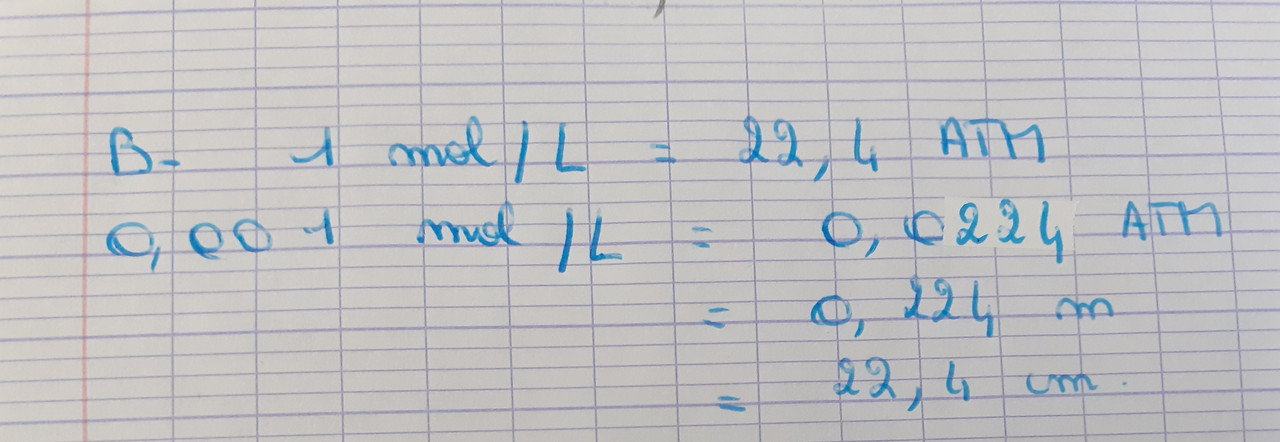 B- 1 mol/L = 22,4 ATM
0,001 mol/L = 0,0224 ATM
= 0,224 m
= 22,4 cm.